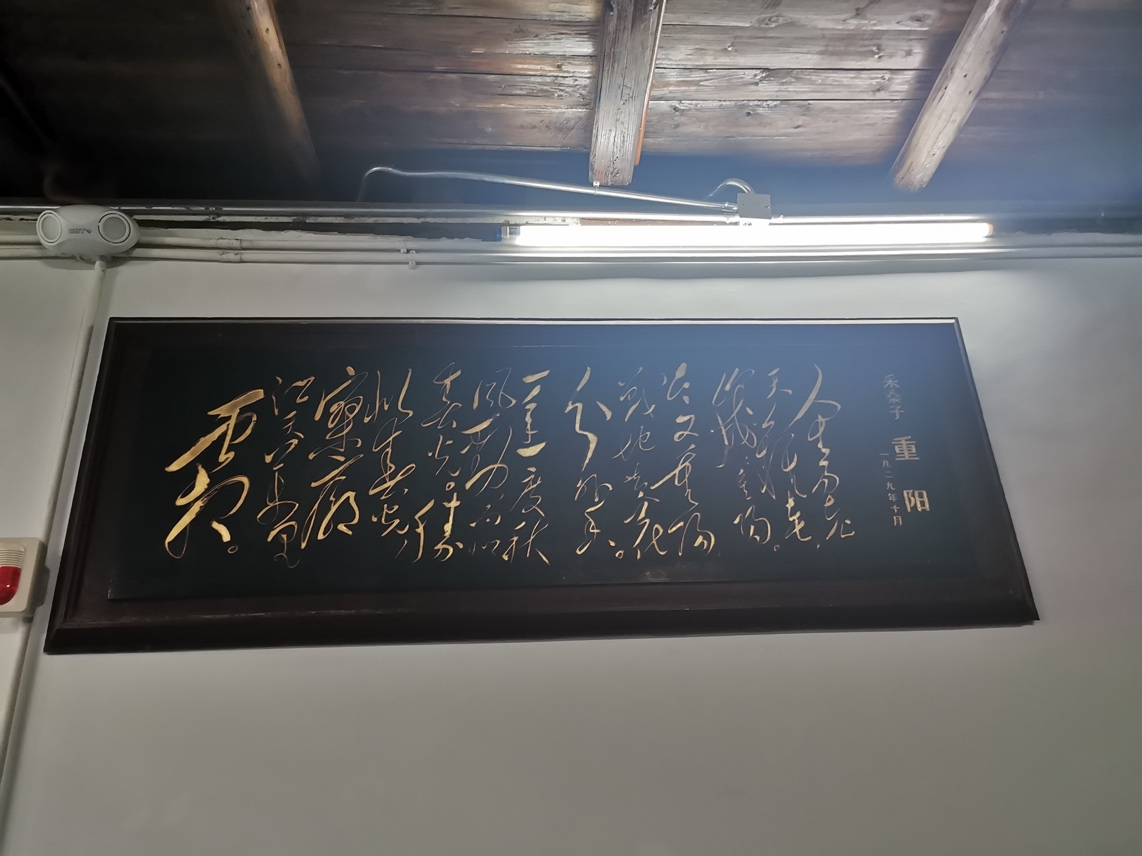 采桑子
重阳
一九二九年十月
人生易老
天难老
岁岁重阳。
今又重阳
战地黄花
分外香。
一年一度秋
风劲不似
春光。胜
似春光
寥廓
江天万里
霜。